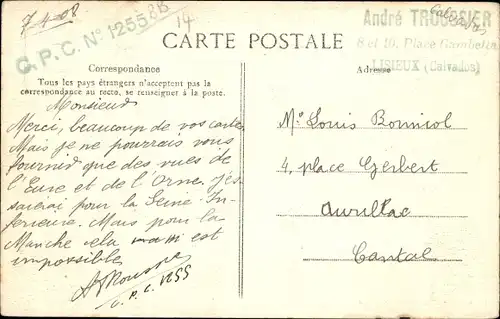 7-4-08
G.P.C. N° 1255
14
André TROUSSIER
8 et 10, Place Gambetta
LISIEUX (Calvados)
CARTE POSTALE
Correspondance
Tous les pays étrangers n'acceptent pas la
correspondance au recto, se renseigner à la poste.
Adresse
Monsieur
Merci, beaucoup de vos cartes
Mais je ne pourrais vous
fournir que des vues de
l'Eure et de l'Orne. J'es-
saierai pour la Seine-In-
férieure. Mais pour la
Manche cela est
impossible
G.P.C. 1255
Mr Louis Bonniol
4, place Gerbert
Aurillac
Cantal